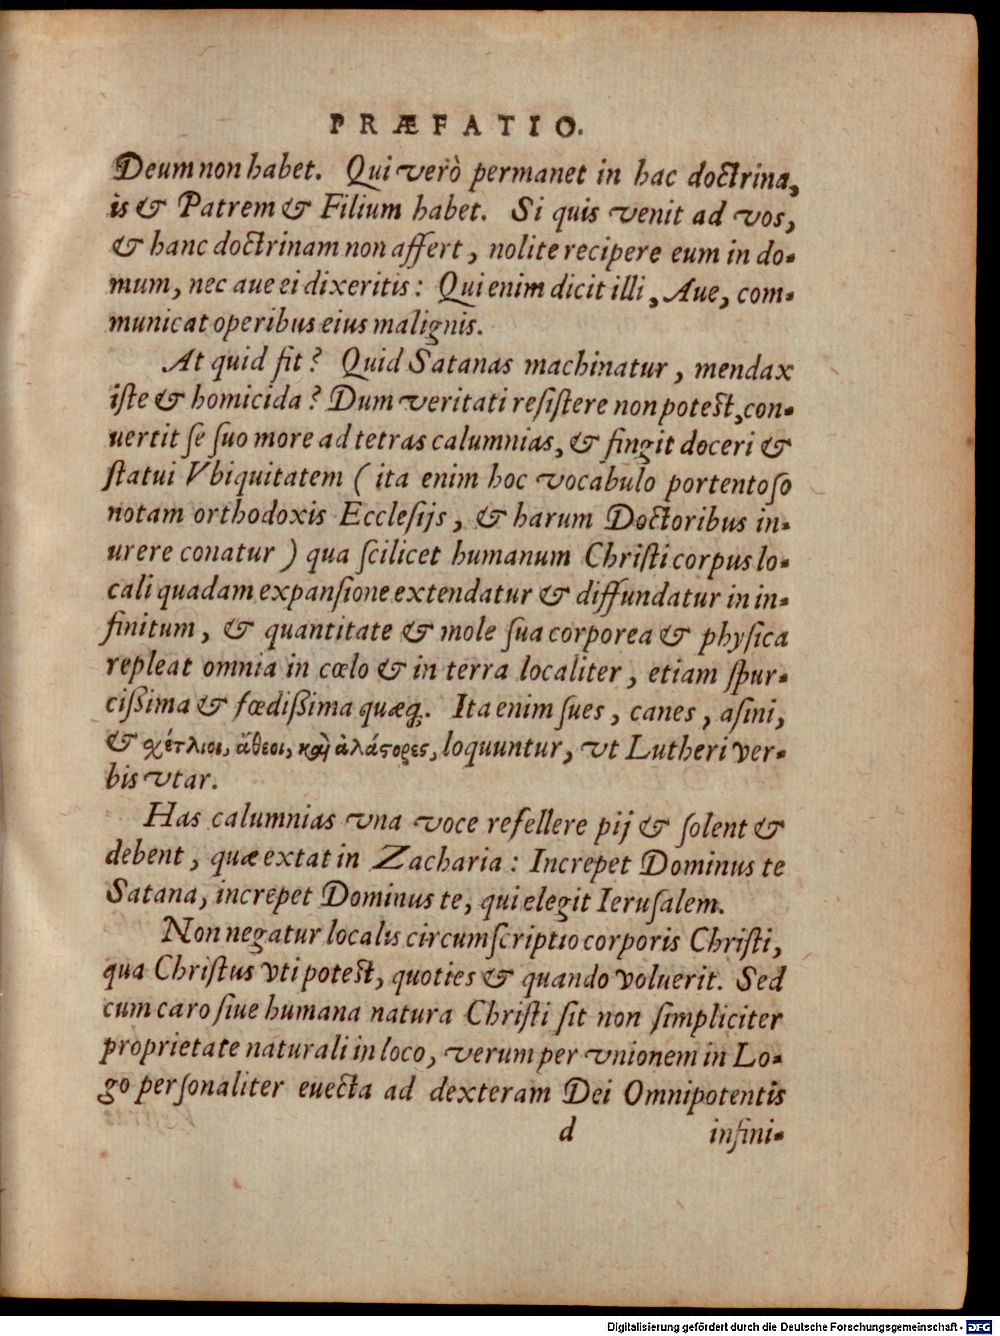 PRÆFATIO.
Deum non habet. Qui verò permanet in hac doctrina,
is & Patrem & Filium habet. Si quis venit ad vos,
& hanc doctrinam non affert, nolite recipere eum in do-
mum, nec aue ei dixeritis: Qui enim dicit illi, Aue, com-
municat operibus eius malignis.
At quid fit? Quid Satanas machinatur, mendax
iſte & homicida? Dum veritati reſiſtere non poteſt, con-
uertit ſe ſuo more ad tetras calumnias, & fingit doceri &
ſtatui Vbiquitatem (ita enim hoc vocabulo portentoſo
notam orthodoxis Eccleſijs, & harum Doctoribus in-
urere conatur) qua ſcilicet humanum Chriſti corpus lo-
cali quadam expanſione extendatur & diffundatur in in-
finitum, & quantitate & mole ſua corporea & phyſica
repleat omnia in cœlo & in terra localiter, etiam ſpur-
ciſſima & fœdiſſima quæq́. Ita enim ſues, canes, aſini,
& σχέτλιοι, ἄθεοι, καὶ ἀλάστορες, loquuntur, vt Lutheri ver-
bis vtar.
Has calumnias vna voce refellere pij & ſolent &
debent, quæ extat in Zacharia: Increpet Dominus te
Satana, increpet Dominus te, qui elegit Ieruſalem.
Non negatur localis circumſcriptio corporis Chriſti,
qua Chriſtus vti poteſt, quoties & quando voluerit. Sed
cum caro ſiue humana natura Chriſti ſit non ſimpliciter
proprietate naturali in loco, verum per vnionem in Lo-
go perſonaliter euecta ad dexteram Dei Omnipotentis
d infini-
Digitalisierung gefördert durch die Deutsche Forschungsgemeinschaft - DFG